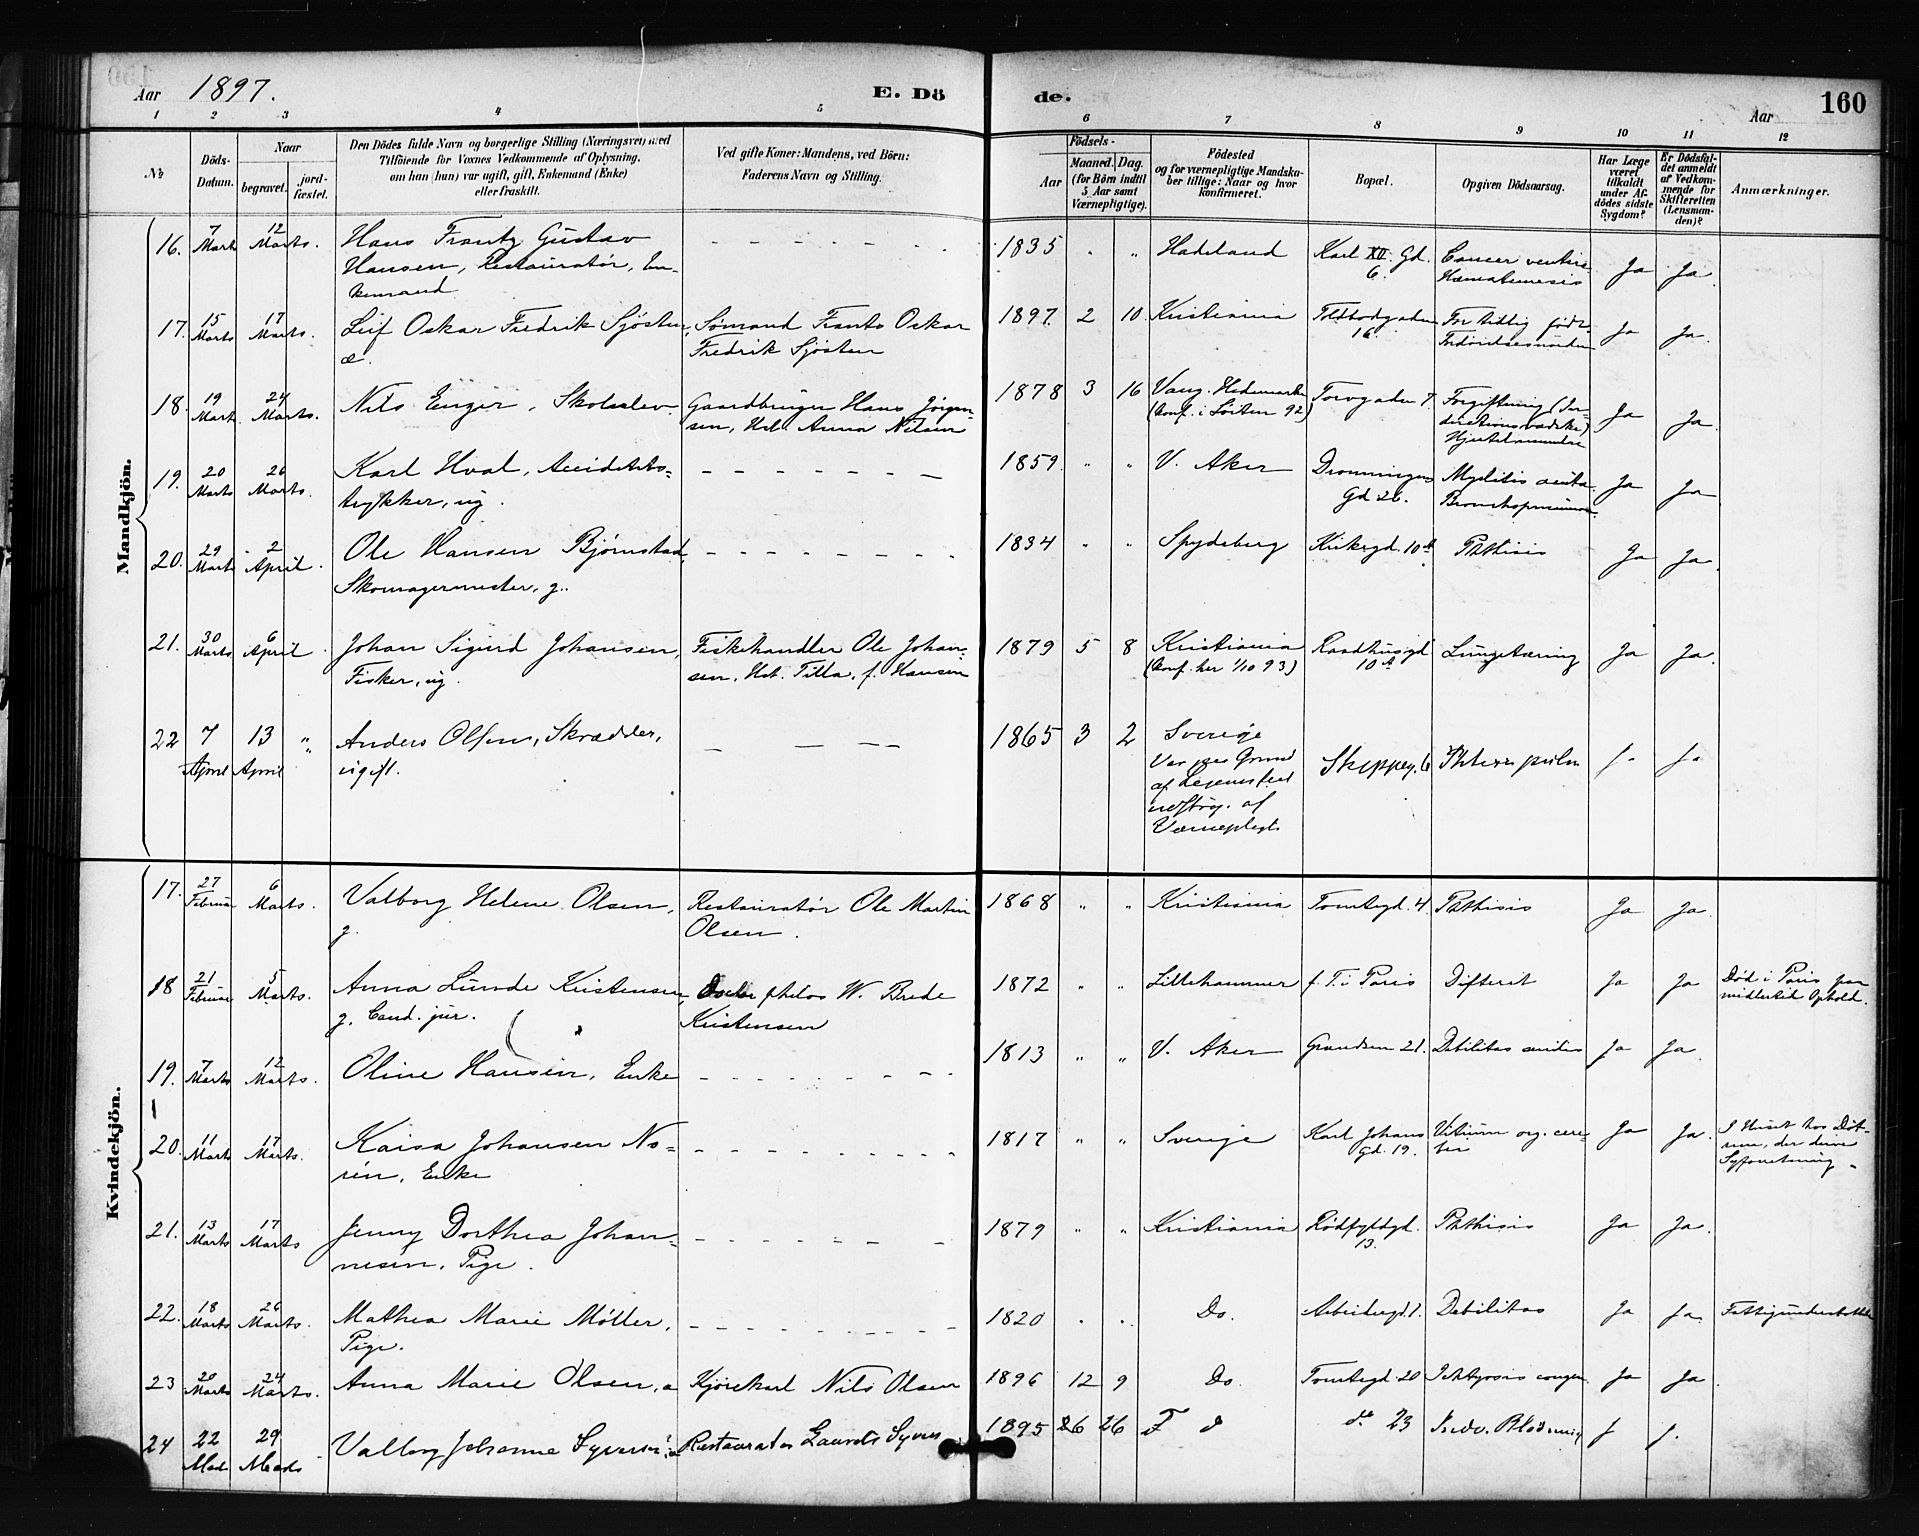 Aar 1897.
E. Dö
de.
Aar
160
1 2 3 4 5 6 7 8 9 10 11 12
No
Döds-
Datum.
Naar
begravet.
jord-
fæstet.
Den Dödes fulde Navn og borgerlige Stilling (Næringsvei) med
Tilföiende for Voxnes Vedkommende af Oplysning,
om han (hun) var ugift, gift, Enkemand (Enke)
eller fraskilt.
Ved gifte Koner: Mandens, ved Börn:
Faderens Navn og Stilling.
Födsels-
Aar
Maaned. Dag.
(for Börn indtil
5 Aar samt
Værnepligtige).
Födested
og for værnepligtige Mandska-
ber tillige: Naar og hvor
konfirmeret.
Bopæl.
Opgiven Dödsaarsag.
Har Læge
været
tilkaldt
under Af-
dödes sidste
Sygdom?
Er Dödsfal-
det anmeldt
af Vedkom-
mende for
Skifteretten
(Lensman-
den)?
Anmærkninger.
Mandkjön.
16. 7 Marts 12 Marts. Hans Frantz Gustav
Hansen, Restauratør, En-
kemand
1835 " " Hadeland Karl XII. Gd. 6. Cancer ventric
Hæmatemesis Ja Ja.
17. 15 Marts 17 Marts. Leif Oskar Fredrik Sjösten,
æ.
Sømand Frants Oskar
Fredrik Sjösten
1897. 2 10. Kristiania Toldbodgaden 16. For tidlig født. Ja Ja.
18. 19 Marts 24 Marts. Nils Enger, Skoleelev.
Gaardbruger Hans Jörgen-
sen, Hst. Anna Nilsen
1878 3 16 Vang. Hedemarken
(Conf. i 92) Torvgaden 7. Forgiftning
Ja Ja.
19. 20 Marts 26 Marts. Karl Hval, Accidents-
trykker, ug.
1859. " " V. Aker Dronningens
Gd 26. Myelitis acuta.
Ja Ja
20. 29 Marts 2 April. Ole Hansen Bjørnstad,
Skomagermester, g.
1834 " " Spydeberg Kirkegd. 10 Phthisis Ja Ja.
21. 30 Marts 6 April. Johan Sigurd Johansen,
Fisker, ug.
Fiskehandler Ole Johan-
sen, Hst. Tilla, f. Hansen
1879 5 8 Kristiania
(Conf. her 1/10 93) Raadhusgd
10 A Lungetæring Ja Ja.
22 7 April 13 April " Anders Olsen, Skrædder,
ugift.
1865 3 2 Sverige
Var paa Grund
af
af
Værnepligt Skippeg. 6 Phtisis pulm J. Ja
Kvindekjön.
17. 27 Februar 6 Marts. Valborg Helene Olsen,
g.
Restauratør Ole Martin
Olsen.
1868 " " Kristiania Tomtegd. 4 Phthisis Ja Ja.
18 21 Februar 5 Marts. Anna Lunde Kristensen,
g. Cand. jur.
philos W. Brede
Kristensen
1872 " " Lillehammer f. T. i Paris Difterit Ja Ja Død i Paris paa
midlertid. Ophold.
19. 7 Marts 12 Marts. Oline Hansen, Enke
1813 " " V. Aker Grændsen 21. Debilitas senilis Ja Ja.
20. 11 Marts 17 Marts. Kaisa Johansen No-
rén, Enke
1817 " " Sverige Karl Johans
Gd. 19. Vitium org. cere-
bri Ja Ja. I Huset hos Døt-
rene, der drive
Syforretning.
21. 13 Marts 17 Marts Jenny Dorthea Johan-
nesen, Pige.
1879 " " Kristiania Rödfyldgd.
13. Phthisis Ja Ja.
22. 18 Marts 26 Marts. Mathea Marie Möller,
Pige.
1820 " " Do. Arbeidergd. 1. Debilitas Ja Ja. Fattigunderstöttet
23 20 Marts 24 Marts. Anna Marie Olsen, æ
Kjörekarl Nils Olsen
1896 12 9 Do. Tomtegd. 20 Ichtyosis congen. Ja Ja.
24 22 29 Valborg Johanne Syversen, æ
Restauratør Laurits Syvers
1895 26 do 23 J J.